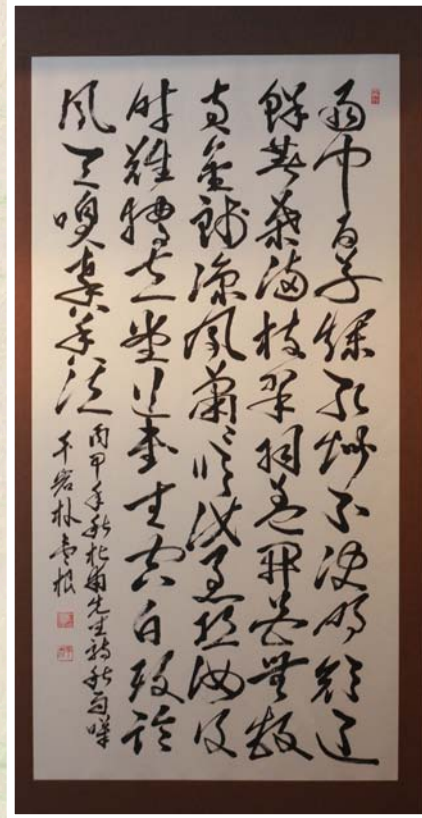 雨中百草秋爛死階下決明顏色
鮮著葉滿枝翠羽蓋開花無數
黃金錢涼風蕭蕭吹汝急恐汝後
時難獨立堂上書生空白頭臨
風三嗅馨香泣
丙申年秋杜甫先生詩秋雨嘆